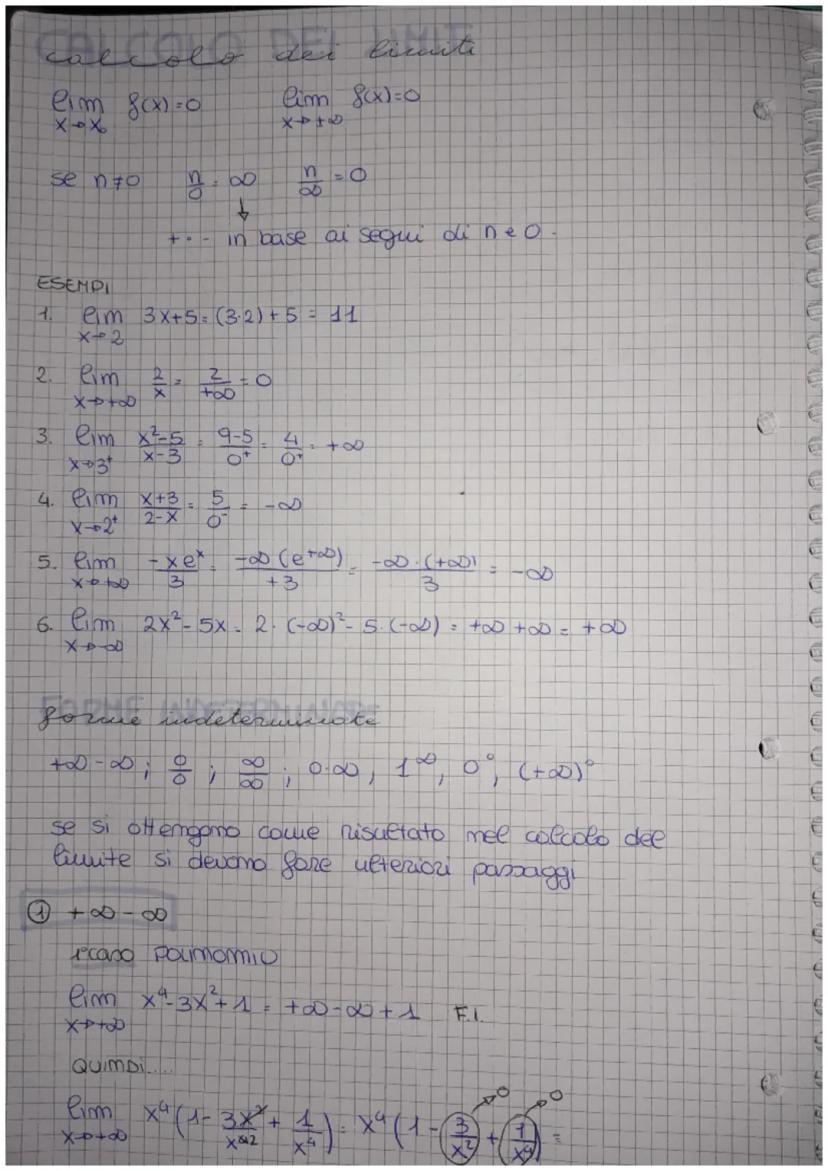 CALCOLO DEI LIMITI
calcolo dei limiti
lim f(x)=0 lim f(x)=0
x→x₀ x→±∞
se n≠0 n/0 = ∞ n/∞ = 0
↓
+ o - in base ai segni di n e 0.
ESEMPI
1. lim 3x+5 = (3·2)+5 = 11
x→2
2. lim 2/x = 2/+∞ = 0
x→+∞
3. lim x²-5/x-3 = 9-5/0⁺ = 4/0⁺ = +∞
x→3⁺
4. lim x+3/2-x = 5/0⁻ = -∞
x→2⁺
5. lim -xeˣ/3 = -∞(e⁺∞)/+3 = -∞·(+∞)/3 = -∞
x→+∞
6. lim 2x²-5x = 2·(-∞)²-5·(-∞) = +∞+∞ = +∞
x→-∞
FORME INDETERMINATE
forme indeterminate
+∞-∞ ; 0/0 ; ∞/∞ ; 0·∞, 1^∞, 0⁰, (+∞)⁰
se si ottengono come risultato nel calcolo del
limite si devono fare ulteriori passaggi
① +∞-∞
1°caso POLINOMIO
lim x⁴-3x²+1 = +∞-∞+1 F.I.
x→+∞
QUINDI....
lim x⁴(1-3x²/x⁴² + 1/x⁴) = x⁴(1-3/x² + 1/x⁴) =
x→+∞ →0 →0